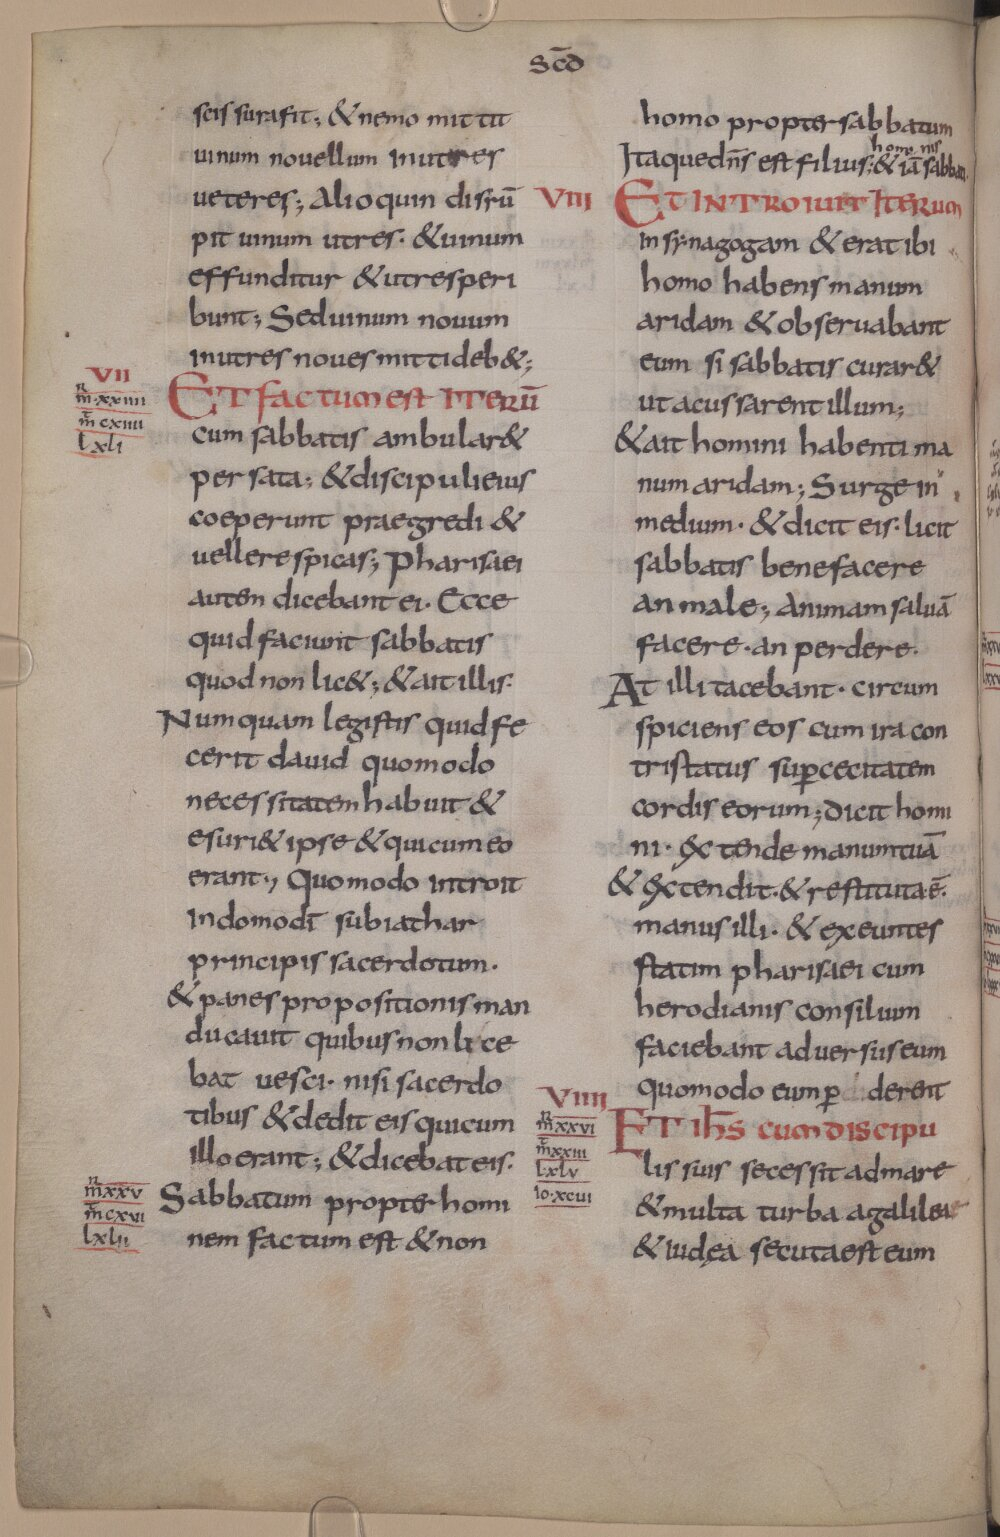 scd̄
scissurafit; & nemo mittit
uinum nouellum inutres
ueteres; Alioquin disrū
pit uinum utres· &uinum
effunditur &utresperi
bunt; Seduinum nouum
inutres noues mittideb&;
VII
Et factum est Iterū
n̄
m̄·xxiiii
m̄ cxiiii
lxli
cum sabbatis ambular&
per sata; &discipulieius
coeperunt praegredi &
uellerespicas; Pharisaei
autem dicebant ei· Ecce
quid faciunt sabbatis
quod non lic&; &ait illis·
Numquam legistis quidfe
cerit dauid quomodo
necessitatem habuit &
esuri& ipse &quicumeo
erant; Quomodo introit
Indomodī subiathar
principis sacerdotum·
&panespropositionisman
ducauit quibusnonlice
bat uesci· nisi sacerdo
tibus &dedit eis quicum
illoerant; &dicebateis·
n̄
m̄xxv
m̄cxvi
lxlii
Sabbatum propter homi
nem factum est &non
homo proptersabbatum
homi nis
Itaquedn̄s est filius; &iāsabbati
VIII Et INTROIUIT ITERUM
in synagogam &erat ibi
homo habens manum
aridam &obseruabant
eum si sabbatis curar&
ut acussarent illum;
&ait homini habenti ma
num aridam; Surge in
medium· &dicit eis· licit
sabbatis benefacere
an male; animam saluā
facere· an perdere·
At illi tacebant· circum
spiciens eos cum ira con
tristatus suꝑcecitatem
cordis eorum; dicit homi
ni· extende manumtuā
& extendit· &restitutaē·
manus illi· & exeuntes
statim pharisaei cum
herodianis consilium
faciebant aduersuseum
quomodo eumꝑ derent
VIIII
Et ih̄s cum discipu
n̄
m̄xxvi
m̄xxiii
lxlv
Io·xcui
lis suis secessit admare
&multa turba agalilea
&iudęa secutaesteum